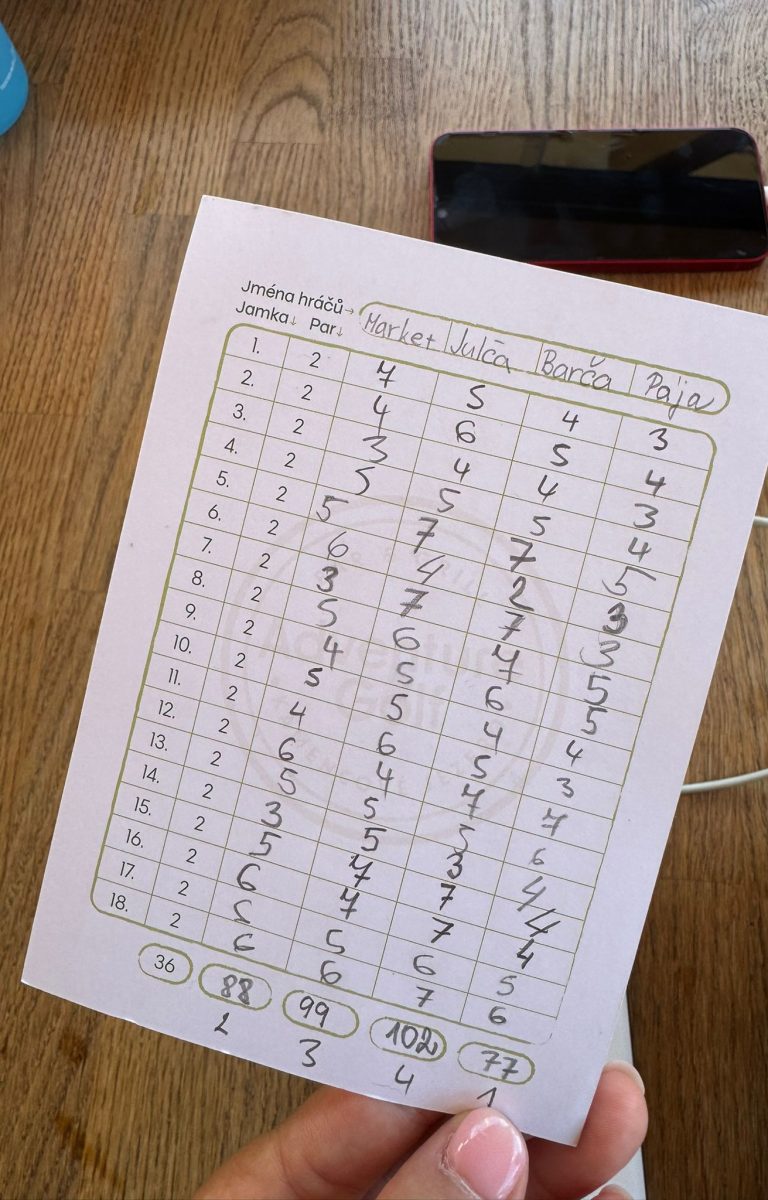 Jména hráčů→
Jamka↓ Par↓ Market Julča Barča Pája
1. 2 7 5 4 3
2. 2 4 6 5 4
3. 2 3 4 4 3
4. 2 5 5 5 4
5. 2 5 7 7 5
6. 2 6 4 2 3
7. 2 3 7 7 3
8. 2 5 6 7 5
9. 2 4 5 6 5
10. 2 5 5 4 4
11. 2 4 6 5 3
12. 2 6 4 7 7
13. 2 5 5 5 6
14. 2 3 5 3 4
15. 2 5 7 7 4
16. 2 6 7 7 4
17. 2 5 5 6 5
18. 2 6 6 7 6
36 88 99 102 77
2 3 4 1
Adventure
Golf